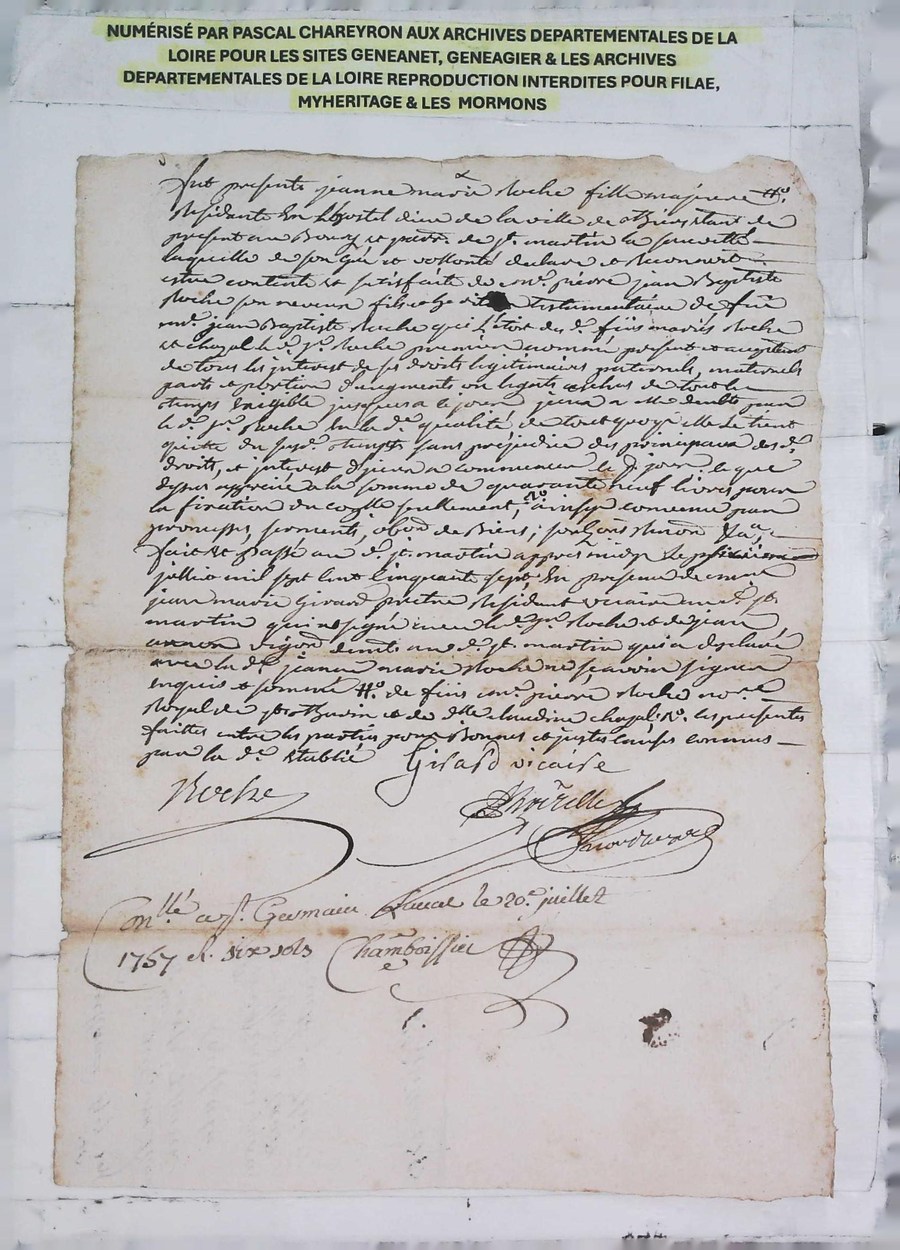 NUMÉRISÉ PAR PASCAL CHAREYRON AUX ARCHIVES DEPARTEMENTALES DE LA
LOIRE POUR LES SITES GENEANET, GENEAGIER & LES ARCHIVES
DEPARTEMENTALES DE LA LOIRE REPRODUCTION INTERDITES POUR FILAE,
MYHERITAGE & LES MORMONS
fut presente jeanne marie Roche fille majeure
Residante En L'hostel dieu de la ville de Thiers Etant de
present au Bourg et parr. de st. martin la sauveté
laquelle de son gré et vollonté declare et Reconnoit
estre contente et satisfaitte de mr. pierre jean Baptiste
Roche son neveu fils et testamentaire de feu
mr. jean Baptiste Roche qui L'étoit des d. feus mariés Roche
et chazal le d. sr. Roche premier nommé present et acceptant
de tous les interest de ses droits légitimaires paternels, maternels
parts et portion d'augments ou legats echus de tout le
temps Exigible jusques a le jour
le d. sr. Roche En la d. qualité de tout quoy elle le tient
quitte du susd. temps sans préjudice des principaux des d.
droits, et interest a commencer le d. jour. le que
dessus apprécié a la somme de quarante neuf livres pour
la fixation du seullement, ainsy convenu par
promesses, serments, obon. de Biens,
fait et passé au d. st. martin appres midy le
mil sept cent cinquante sept En presence de
jean marie Girard pretre Résident vicaire au d. st.
martin qui a signé avec le d. sr. Roche et de jean
au d. st. martin qui a déclaré
avec la d. jeanne marie Roche ne sçavoir signer
enquis et sommé de feus mr. pierre Roche
Royal de et de dlle. claudine chazal les presentes
faittes entre les parties pour Bonnes et justes causes connues
par la d. établie
Girard vicaire
Roche
a st. Germain Laval le 20e. juillet
1757 six sols Chamboissier